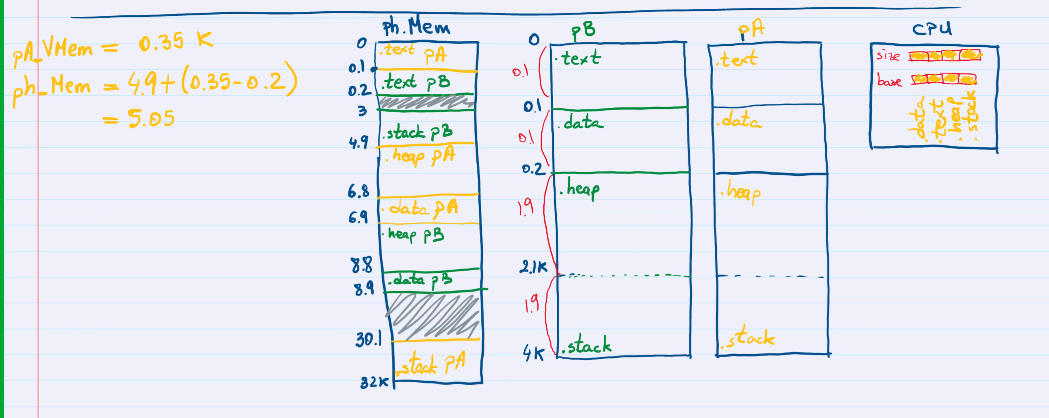 pA_VMem = 0.35 K
ph_Mem = 4.9+(0.35-0.2)
= 5.05
ph.Mem
0
.text pA
0.1
.text pB
0.2
3
.stack pB
4.9
.heap pA
6.8
.data pA
6.9
.heap pB
8.8
.data pB
8.9
30.1
.stack pA
32K
pB
0
.text
0.1
0.1
.data
0.1
0.2
.heap
1.9
2.1K
1.9
.stack
4K
pA
.text
.data
.heap
.stack
CPU
size
base
.data
.text
.heap
.stack